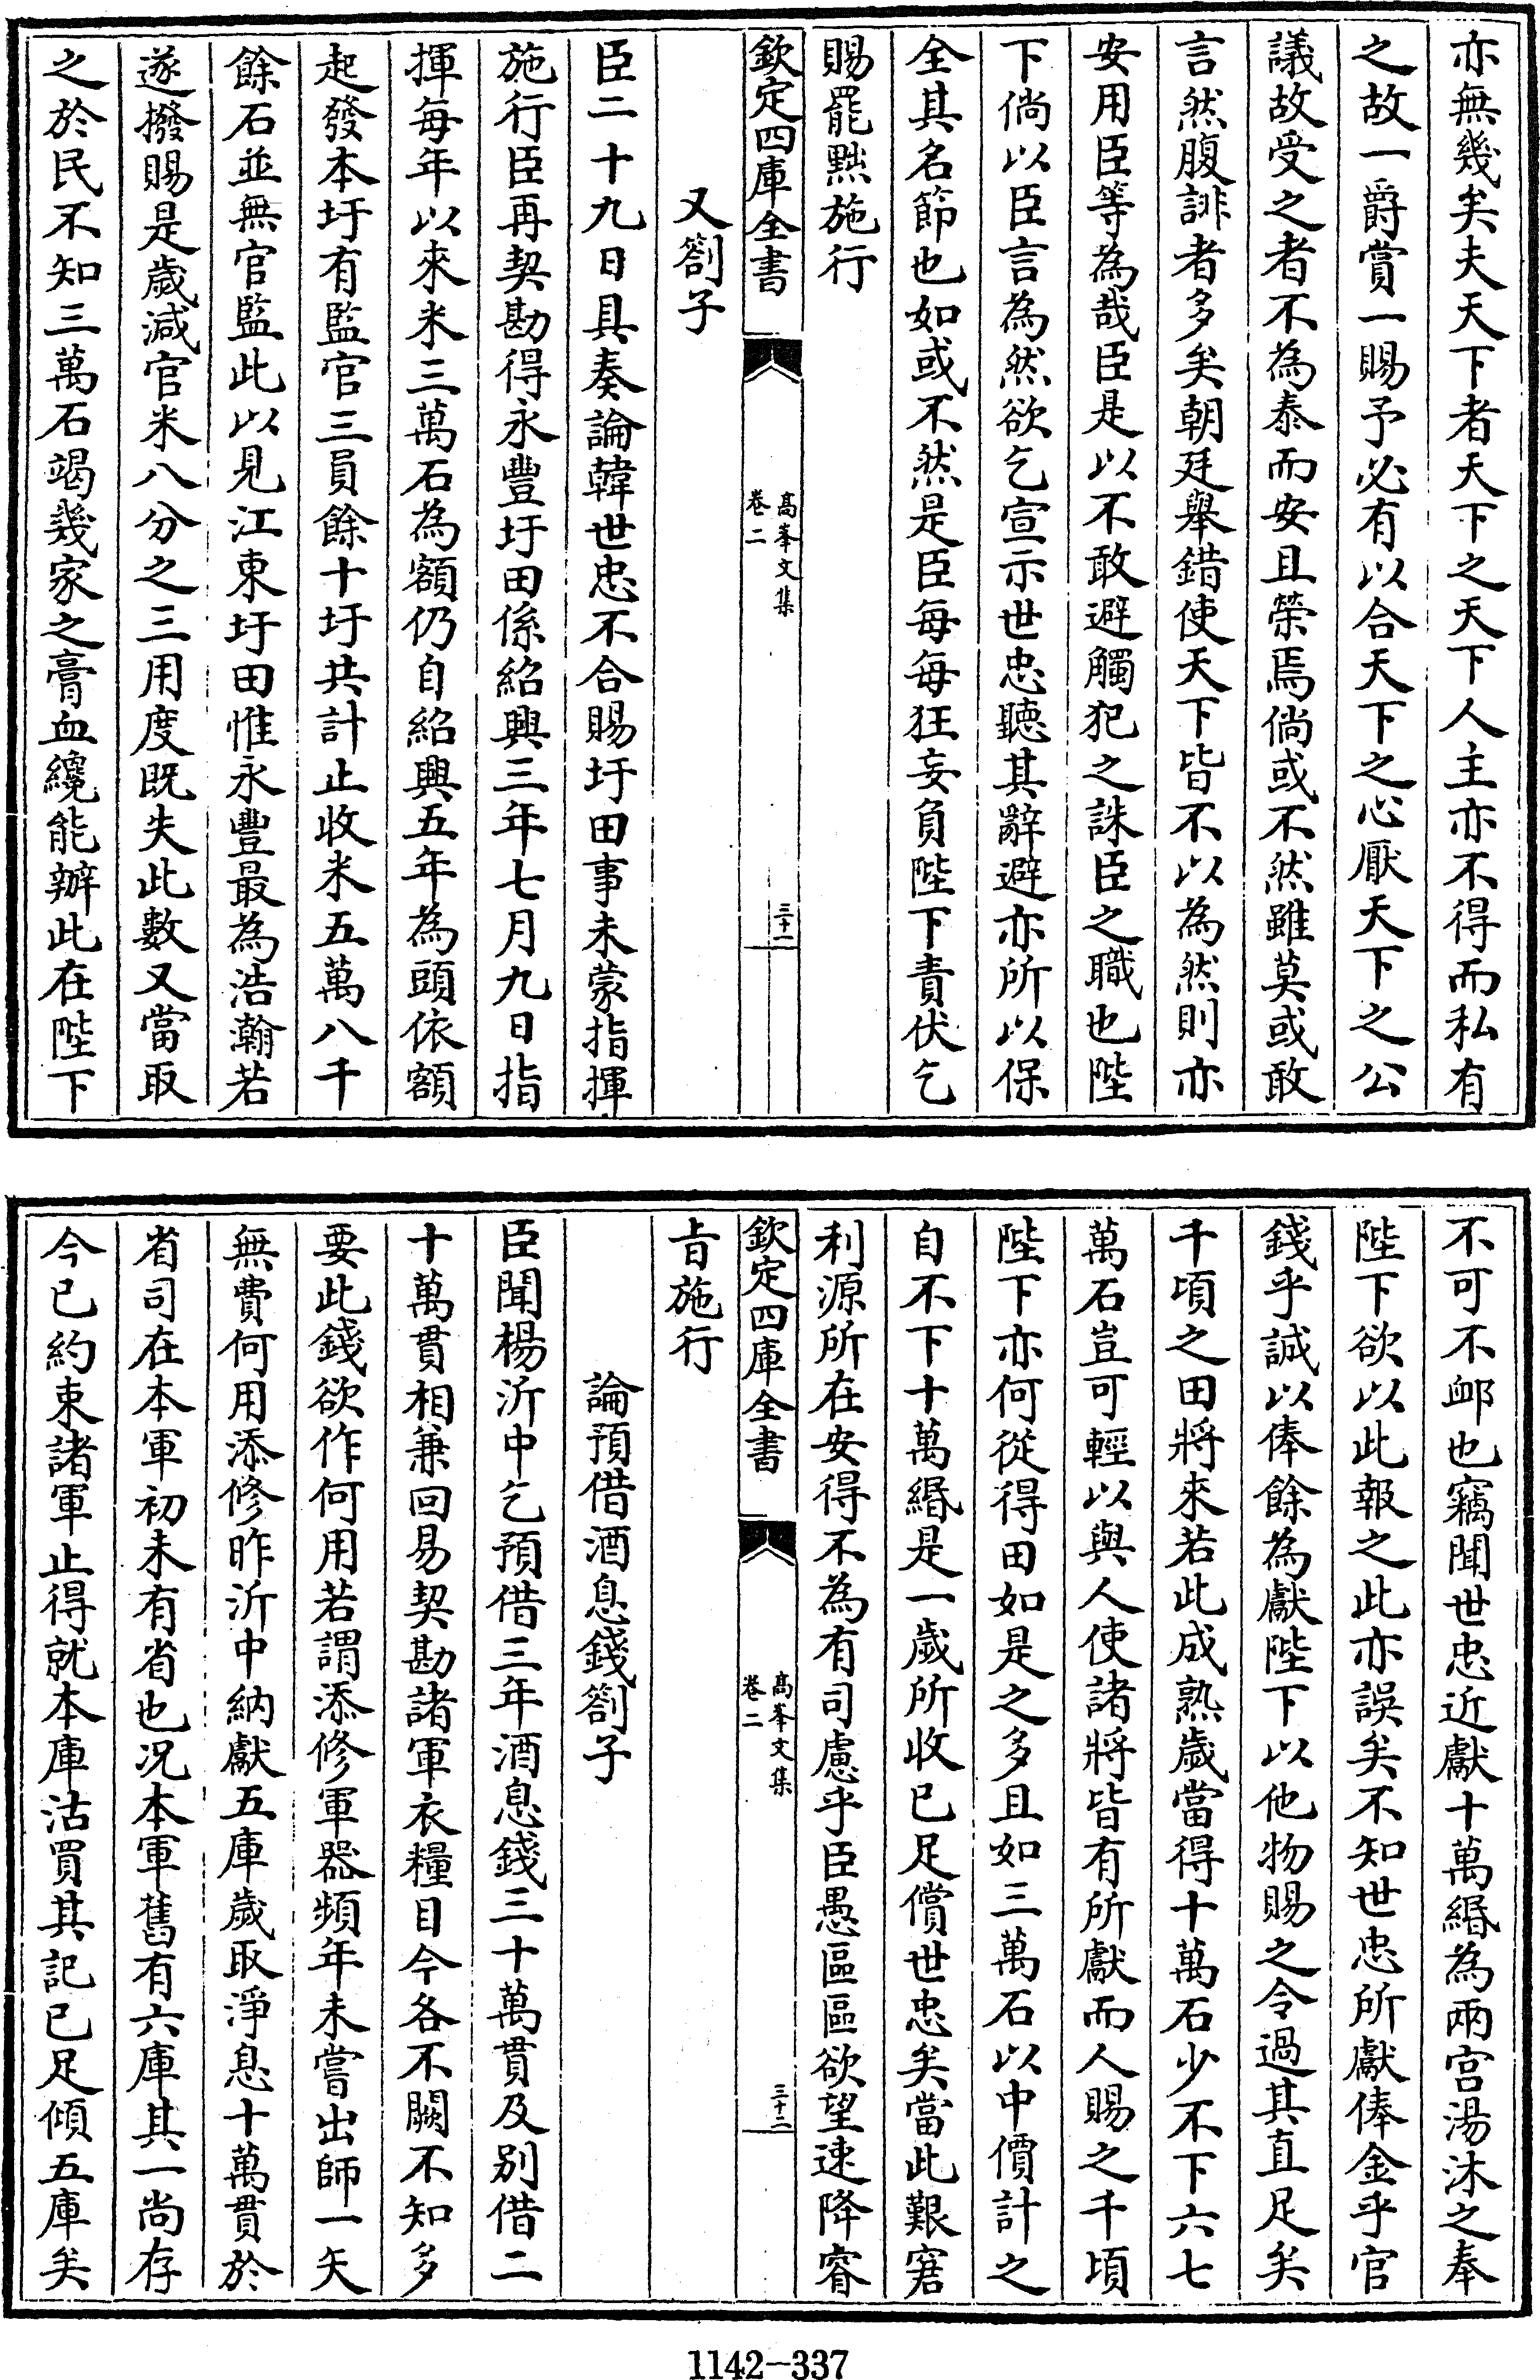 亦無幾矣夫天下者天下之天下人主亦不得而私有
之故一爵賞一賜予必有以合天下之心厭天下之公
議故受之者不為泰而安且榮焉倘或不然雖莫或敢
言然腹誹者多矣朝廷舉錯使天下皆不以為然則亦
安用臣等為哉臣是以不敢避觸犯之誅臣之職也陛
下倘以臣言為然欲乞宣示世忠聽其辭避亦所以保
全其名節也如或不然是臣每每狂妄負陛下責伏乞
賜罷黜施行
欽定四庫全書
高峯文集
卷二
三十一
又劄子
臣二十九日具奏論韓世忠不合賜圩田事未蒙指揮
施行臣再契勘得永豐圩田係紹興三年七月九日指
揮每年以來米三萬石為額仍自紹興五年為頭依額
起發本圩有監官三員餘十圩共計止收米五萬八千
餘石並無官監此以見江東圩田惟永豐最為浩瀚若
遂撥賜是歲減官米八分之三用度既失此數又當取
之於民不知三萬石竭幾家之膏血纔能辦此在陛下
不可不卹也竊聞世忠近獻十萬緡為兩宮湯沐之奉
陛下欲以此報之此亦誤矣不知世忠所獻俸金乎官
錢乎誠以俸餘為獻陛下以他物賜之令過其直足矣
千頃之田將來若此成熟歲當得十萬石少不下六七
萬石豈可輕以與人使諸將皆有所獻而人賜之千頃
陛下亦何從得田如是之多且如三萬石以中價計之
自不下十萬緡是一歲所收已足償世忠矣當此艱窘
利源所在安得不為有司慮乎臣愚區區欲望速降睿
欽定四庫全書
高峯文集
卷二
三十二
旨施行
論預借酒息錢劄子
臣聞楊沂中乞預借三年酒息錢三十萬貫及別借二
十萬貫相兼回易契勘諸軍衣糧目今各不闕不知多
要此錢欲作何用若謂添修軍器頻年未嘗出師一矢
無費何用添修昨沂中納獻五庫歲取淨息十萬貫於
省司在本軍初未有省也况本軍舊有六庫其一尚存
今已約束諸軍止得就本庫沽買其記已足傾五庫矣
1142-337